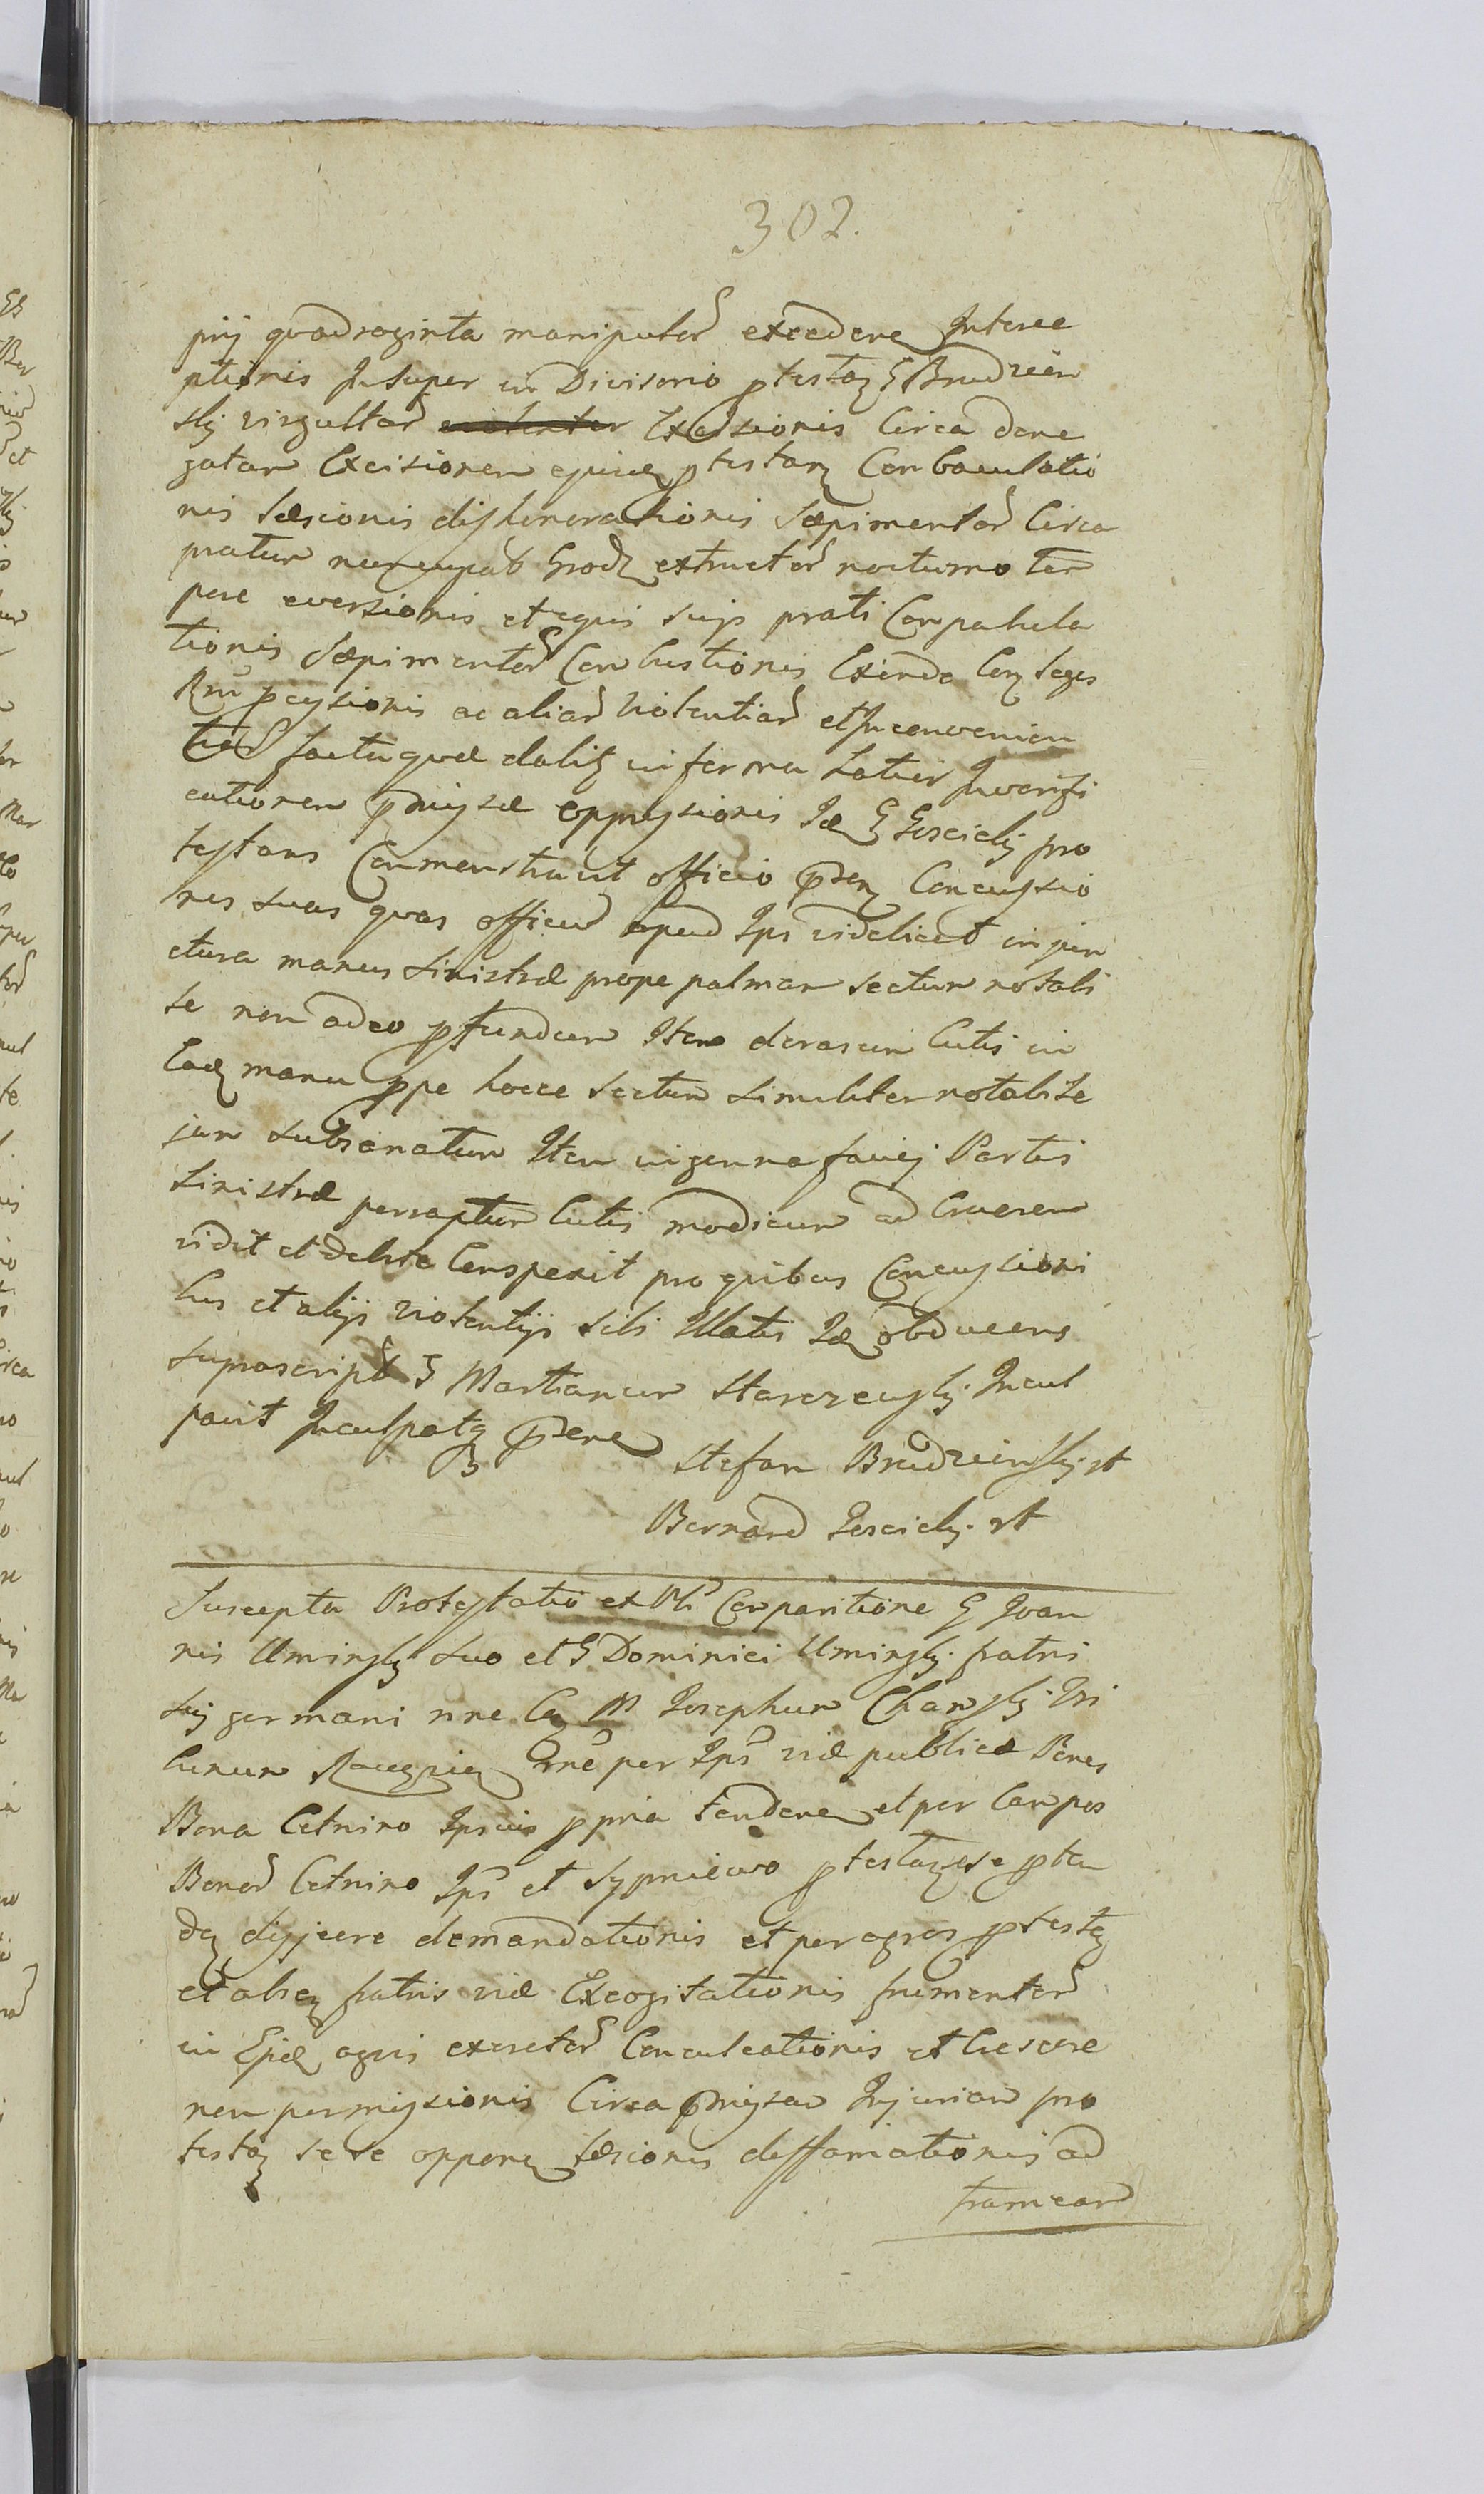 302.
prij quadraginta manipulor excedere Interce
ptionis Insuper in Divisorio ptestoz G Brudzien
skij virgultar violenter Exscionis Circa dene
gatam Excisionem ejusdz ptestans Conbaculatio
nis Læsionis dishonorationis Sæpimentor Circa
pratum nuncupat Grodz extructor nocturno tem
pore eversionis et equis suis prati Conpabula
tionis Sæpimentor Conbustionis Exinde Conz leges
Rni pcussionis ac aliar violentiar et Inconvenien
tiar factu quæ dalitz in forma Latior In verifi
cationem pmissæ oppressionis Id G Goscicki pro
testans Conmonstravit officio pden Concussio
nes suas quas officiu apud Ips videlicet in jun
ctura manus sinistræ prope palmam sectum notabi
le non adeo pfundum Item derasum Cutis in
Eadz manu prope hocce sectum similiter notabile
jam subsanatum Item in genna faciej Partis
Sinistræ perraptum Cutis modicum ad Cruorem
vidit et debite Conspexit pro quibus Concussioni
bus et alijs violentijs sibi Illatis Idz obducens
suprascript G Martianum Starczewski Incul
pavit Inculpatz pdene
Stefan Brudzienski mp
Bernard Goscicki mp
Suscepta Protestatio ex Obl Conparitione G Joan
nis Uminski suo et G Dominici Uminski fratris
sui germani nne Con M Josephum Charski Tri
bunum Raciąz ne per Ips viæ publicæ Penes
Bona Cetnino Ipsius ppria tendere et per Campos
Bonor Cetnino Ips et Sypniewo ptestaz se pten
dz disjicere demandationis et per agros ptestz
et absz fratris viæ Excogitationis frumentor
in Ejsdz agris excretor Conculcationis et Crescere
non permissionis Circa pmissam Injuriam pro
testoz se se opponz læsionis diffamationis ad
frameam